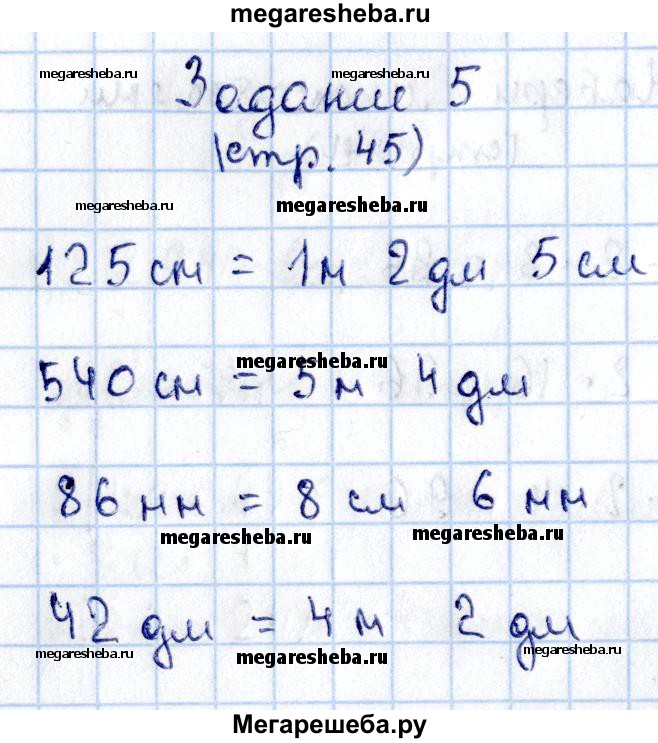 megaresheba.ru
megaresheba.ru megaresheba.ru
Задание 5
(стр. 45)
megaresheba.ru megaresheba.ru
125 см = 1 м 2 дм 5 см
megaresheba.ru
540 см = 5 м 4 дм
86 мм = 8 см 6 мм
megaresheba.ru megaresheba.ru
42 дм = 4 м 2 дм
megaresheba.ru megaresheba.ru megaresheba.ru
Мегарешеба.ру